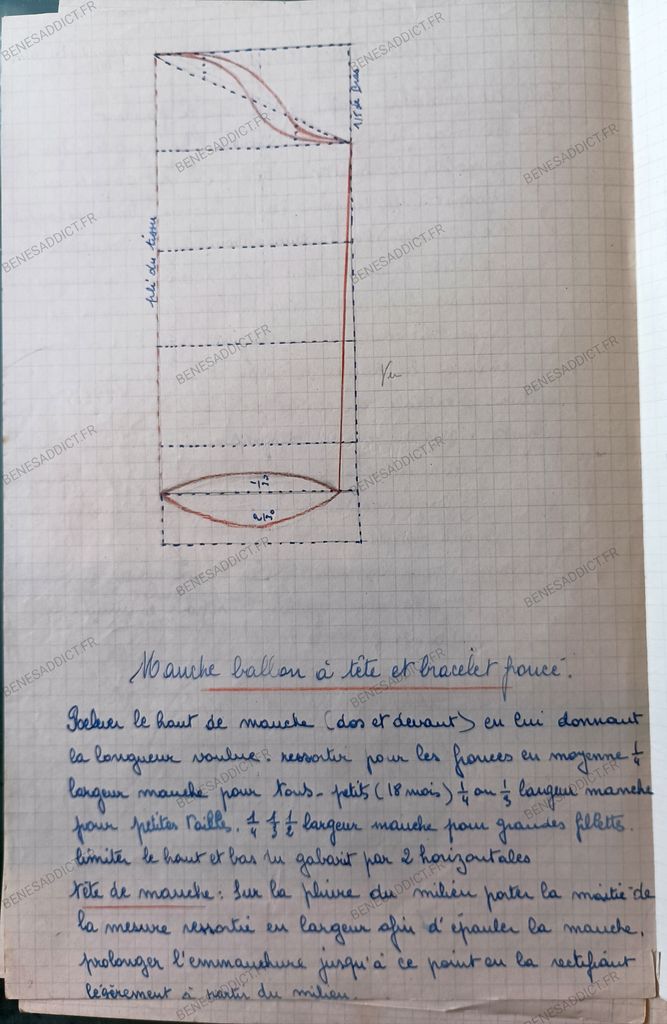 1/5 de Bras
pli du tissu
Vu
1/30
2/30
Manche ballon à tête et bracelet froncé.
Relever le haut de manche (dos et devant) en lui donnant
la longueur voulue : ressortir pour les fronces en moyenne 1/4
largeur manche pour tous-petits (18 mois) 1/4 ou 1/3 largeur manche
pour petites tailles. 1/4 1/3 1/2 largeur manche pour grandes fillettes.
limiter le haut et bas du gabarit par 2 horizontales
tête de manche : Sur la pliure du milieu porter la moitié de
la mesure ressortie en largeur afin d'épauler la manche.
prolonger l'emmanchure jusqu'à ce point en la rectifiant
légèrement à partir du milieu.
BENESADDICT.FR